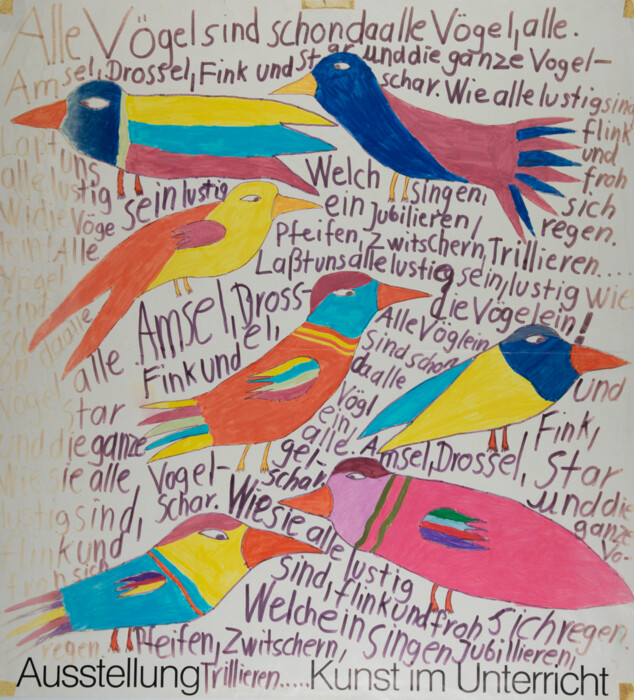 Alle Vögel sind schon da alle Vögel, alle.
Amsel, Drossel, Fink und Star und die ganze Vogel-
schar. Wie alle lustig sind
flink
und
froh
sich
regen.
Laßt
uns
alle lustig sein lustig
Wi die Vöge
lein! Alle
Vögel
sind
schon da alle
Vögel alle
Welch singen,
ein Jubilieren,
Pfeifen, Zwitschern, Trillieren.....
Laßt uns alle lustig sein, lustig wie
die Vögelein!
Amsel, Dross-
el,
Fink und
Star
und die ganze
Wie sie alle Vogel-
schar.
lustig sind,
flink und
froh sich
regen.
Alle Vöglein
sind schon
da alle
Vögl
ein,
alle. Amsel, Drossel,
und
Fink,
Star
und die
ganze
Vo-
gel-
schar.
Wie sie alle lustig
sind, flink und froh sich regen.
Welch ein Singen Jubillieren,
Pfeifen, Zwitschern,
Trillieren.....
Ausstellung Kunst im Unterricht